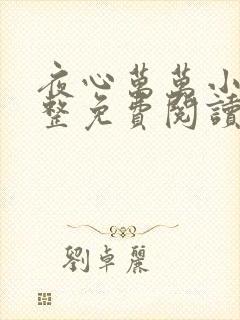 夜心萬萬小
整免費閱讀
劉卓麗